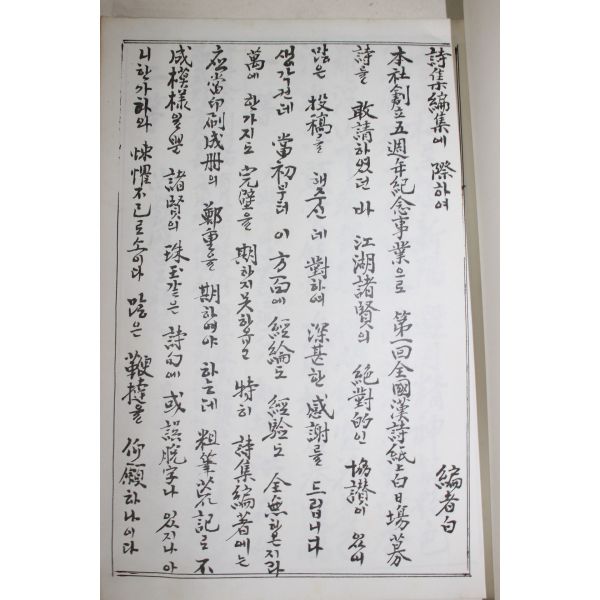 詩集編集에 際하여
編者白
本社創立五週年紀念事業으로 第一回全國漢詩紙上白日場募
詩를 敢請하였던바 江湖諸賢의 絶對的인 協讃이 있어
많은 投稿를 해주신데 對하여 深甚한 感謝를 드립니다
생각컨데 當初부터 이 方面에 經綸도 經驗도 全無하온지라
萬에 한가지도 完璧을 期하지못하옵고 特히 詩集編著에는
應當印刷成册의 鄭重을 期하여야 하는데 粗筆荒記로 不
成模樣일뿐 諸賢의 珠玉같은 詩句에 或 誤脫字나 있지나 아
니한가하와 悚懼不已로소이다 많은 鞭撻을 仰願하나이다